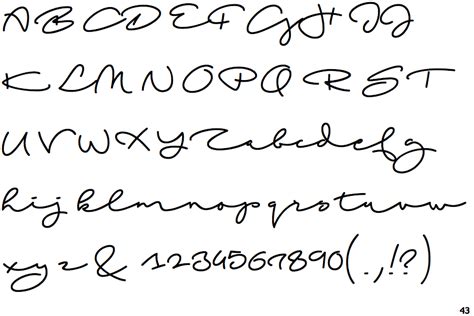 ABCDEFGHIJ
KLMNOPQRST
UVWXYZabcdefg
hijklmnopqrstuvw
xyz&1234567890(.,!?)
43